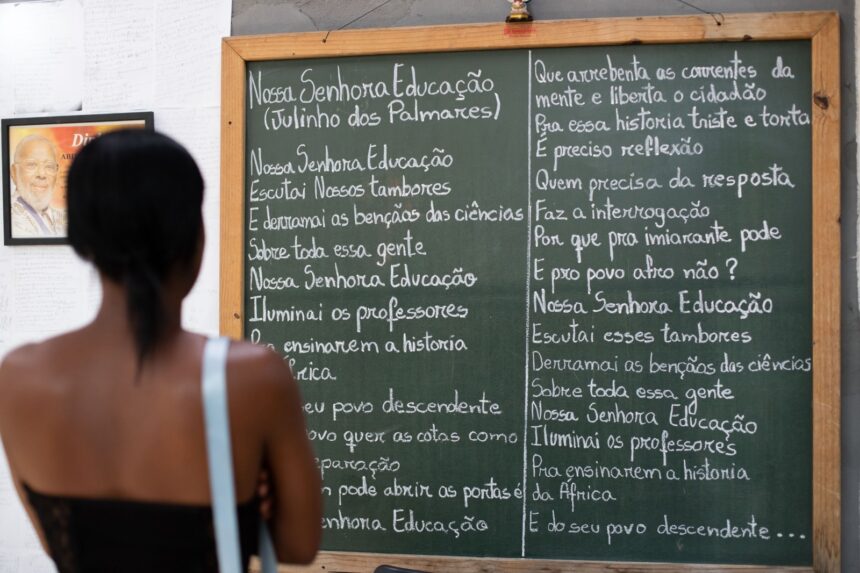 Nossa Senhora Educação
(Julinho dos Palmares)
Nossa Senhora Educação
Escutai Nossos tambores
E derramai as bençãos das ciências
Sobre toda essa gente
Nossa Senhora Educação
Iluminai os professores
Pra ensinarem a historia
frica
seu povo descendente
povo quer as cotas como
eparação
m pode abrir as portas é
enhora Educação
Que arrebenta as correntes da
mente e liberta o cidadão
Pra essa historia triste e torta
É preciso reflexão
Quem precisa da resposta
Faz a interrogação
Por que pra imiarante pode
E pro povo afro não?
Nossa Senhora Educação
Escutai esses tambores
Derramai as bençãos das ciências
Sobre toda essa gente
Nossa Senhora Educação
Iluminai os professores
Pra ensinarem a historia
da África
E do seu povo descendente...